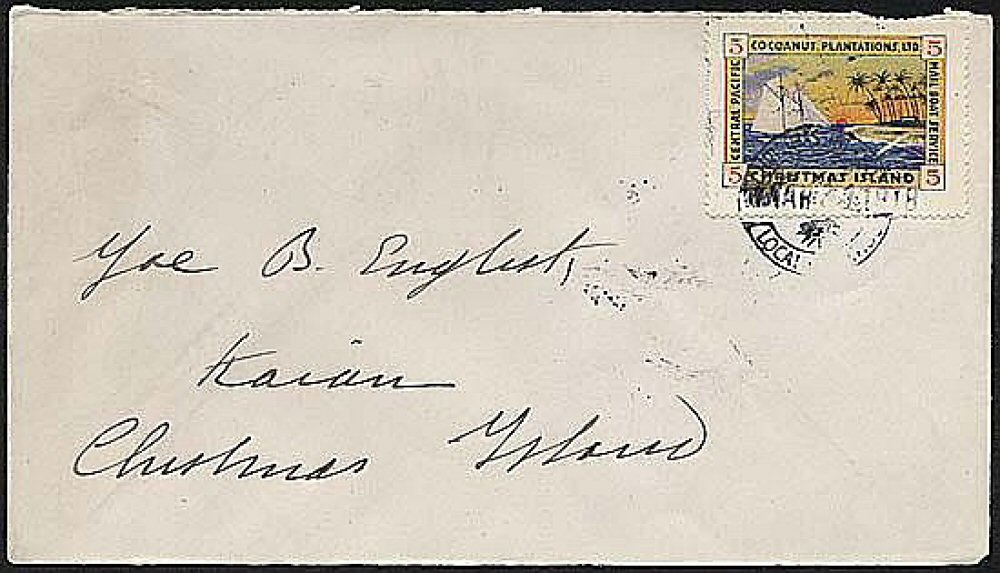 5 COCOANUT PLANTATIONS, LTD. 5
CENTRAL PACIFIC
MAIL BOAT SERVICE
CHRISTMAS ISLAND
5 5
LOCAL
Joe B. English,
Christmas Island